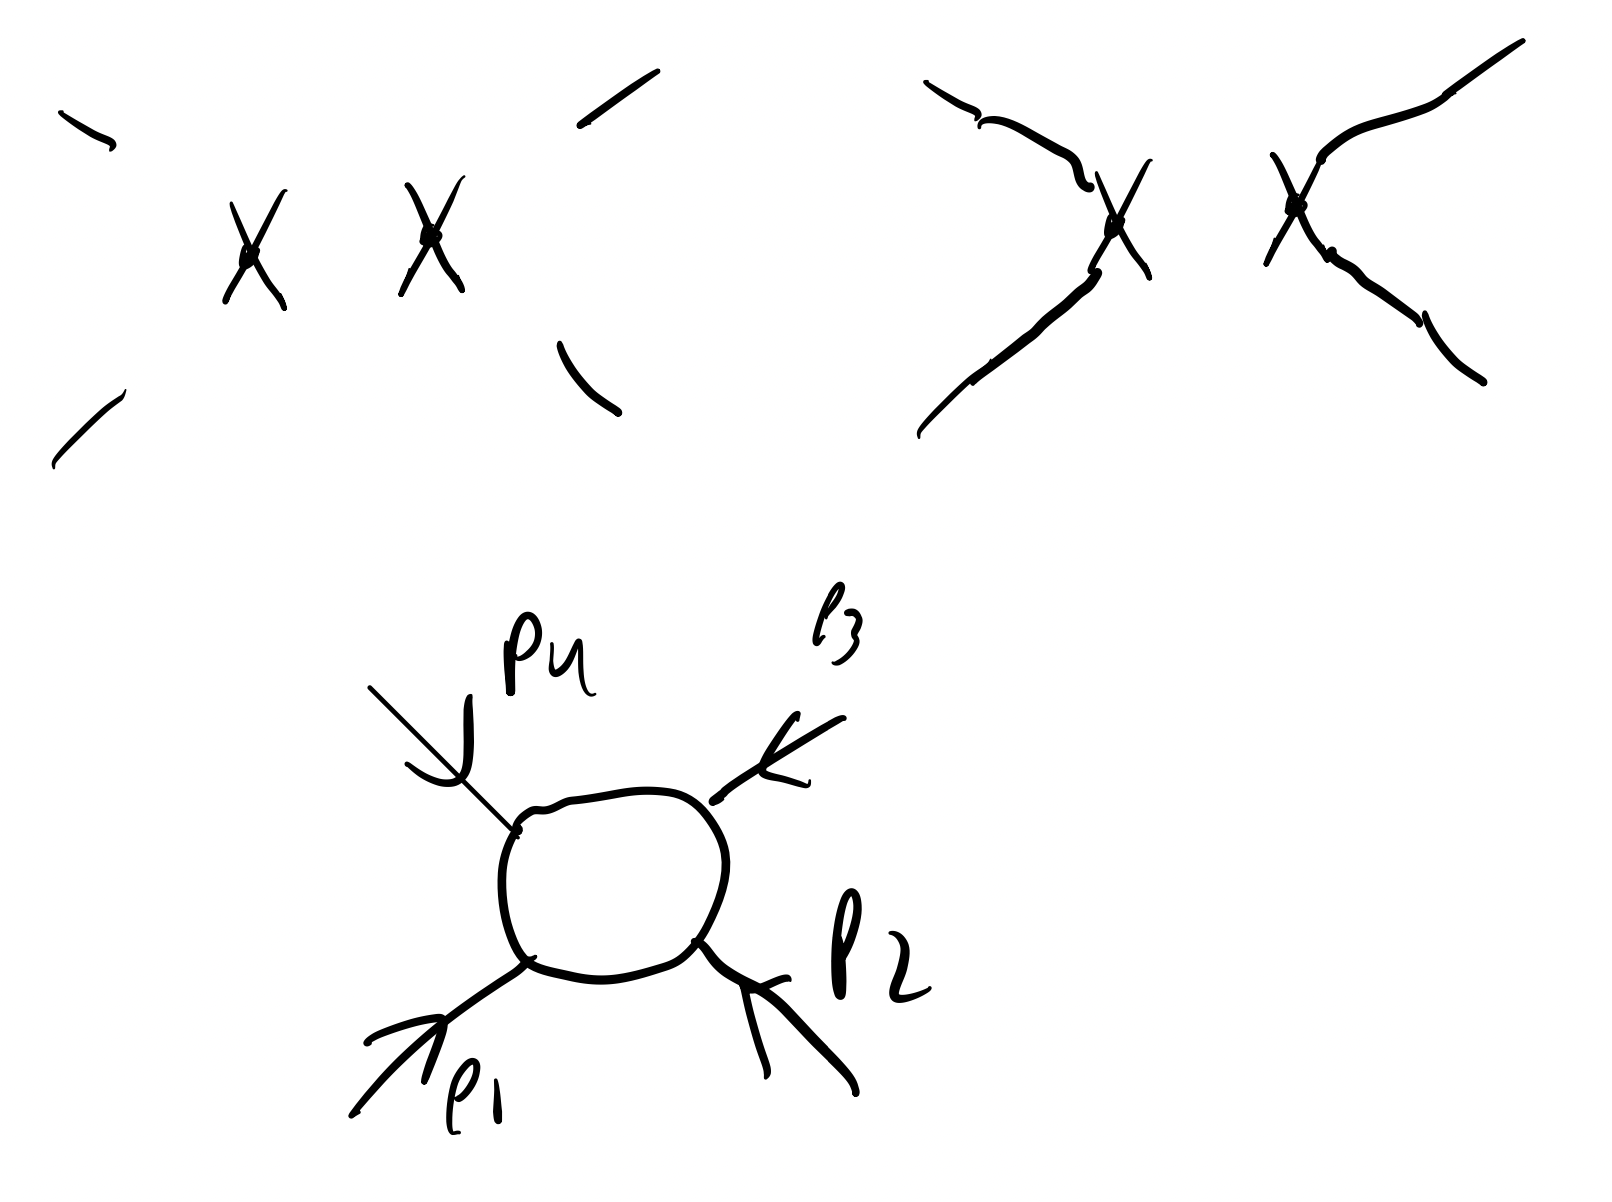 P4
P3
P2
P1